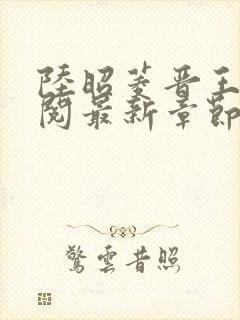 陸昭菱晉王
閱最新章節
驚雲昔照